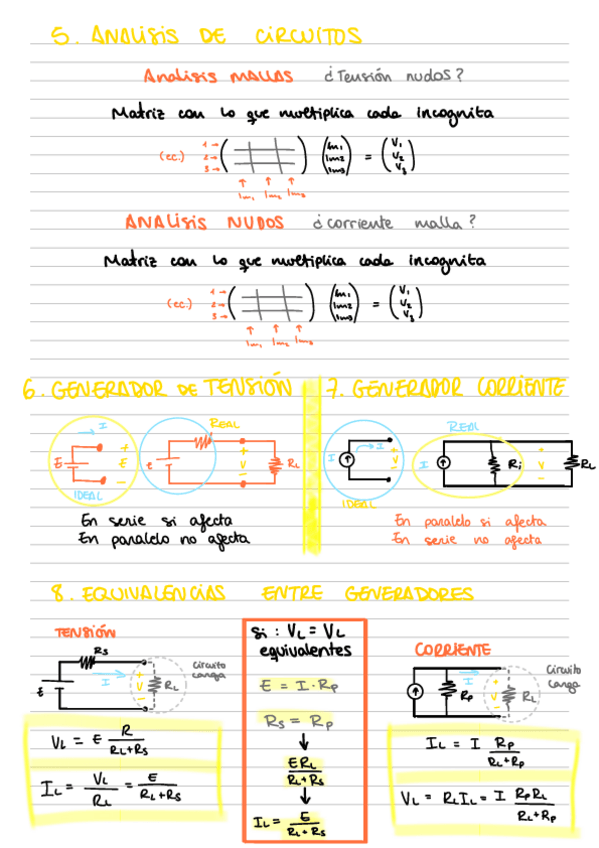 5. ANALISIS DE CIRCUITOS
Analisis MALLAS ¿Tensión nudos?
Matriz con lo que multiplica cada incognita
(ec.) 1→ 2→ 3→ ( ) (Im1 Im2 Im3) = (V1 V2 V3)
Im1 Im2 Im3
ANALisis NUDOS ¿corriente malla?
Matriz con lo que multiplica cada incognita
(ec.) 1→ 2→ 3→ ( ) (Im1 Im2 Im3) = (V1 V2 V3)
Im1 Im2 Im3
6. GENERADOR DE TENSIÓN
I
E
+
E
-
IDEAL
REAL
E
+
V
-
RL
En serie si afecta
En paralelo no afecta
7. GENERADOR CORRIENTE
I
I
IDEAL
REAL
I
Ri
+
V
-
RL
En paralelo si afecta
En serie no afecta
8. EQUIVALENCIAS ENTRE GENERADORES
TENSIÓN
Rs
E
I
+
V
-
RL
circuito carga
VL = E R / RL+Rs
IL = VL / RL = E / RL+Rs
si : VL = VL
equivalentes
E = I·Rp
Rs = Rp
↓
ERL / RL+Rs
↓
IL = E / RL+Rs
CORRIENTE
Rp
I
+
V
-
RL
circuito carga
IL = I Rp / RL+Rp
VL = RLIL = I RpRL / RL+Rp